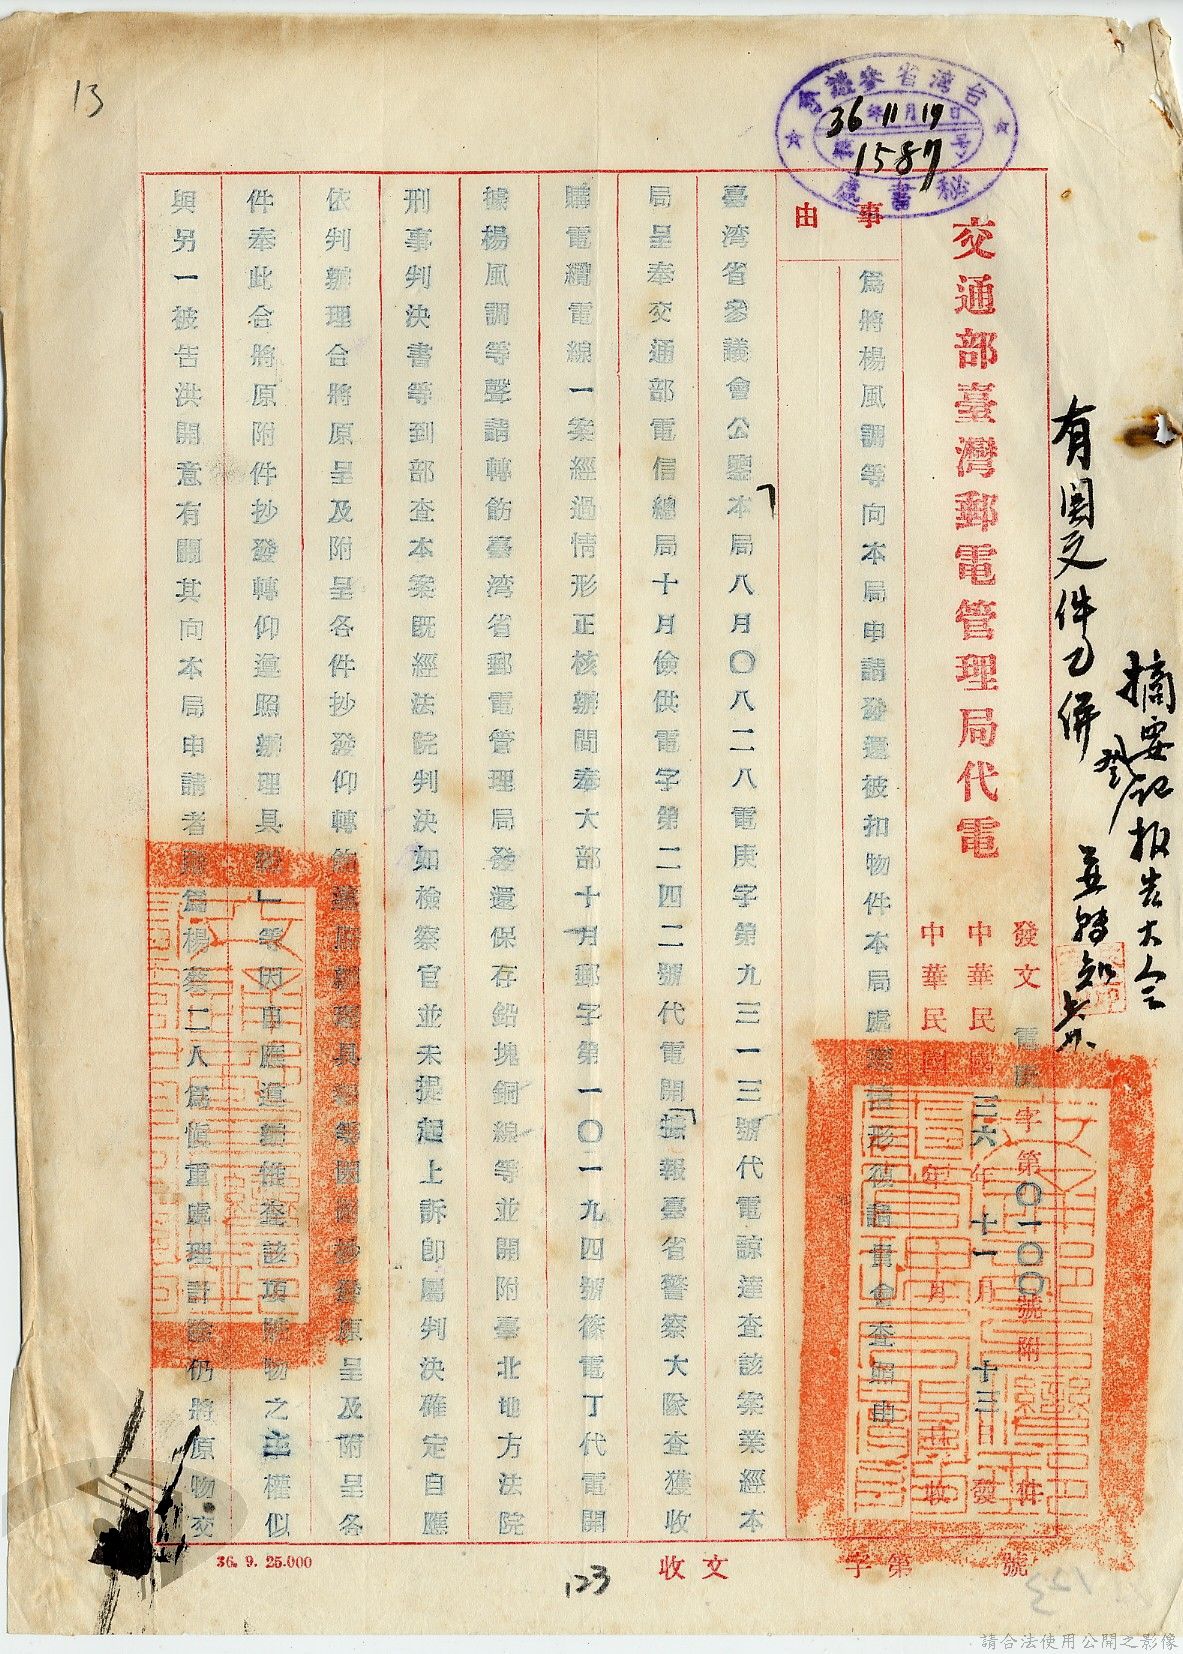 13
台湾省參議會
36年11月19日
第1587号
秘書處
有関文件乙併
摘要記報告大会
交通部臺灣郵電管理局代電
發文 字第〇一〇〇號附 件
中華民國三六年十一月十三日發
中華民國 年 月
事由
為將楊風調等向本局申請發還被扣物件本局處 形 貴會查照由
臺湾省參議會公鑒「本局八月〇八二八電庚字第九三一三號代電諒達查該案業經本
局呈奉交通部電信總局十月儉供電字第二四二號代電開「據報臺省警察大隊查獲收
購電纜電線一案經過情形正核辦間奉大部十月郵字第一〇一九四號篠電丁代電開
據楊風調等聲請轉飭臺湾省郵電管理局發還保存鉛塊銅線等並開附臺北地方法院
刑事判決書等到部查本案既經法院判決如檢察官並未提起上訴卽屬判決確定自應
依判辦理合將原呈及附呈各件抄發仰轉飭 具 等 抄發原呈及附呈各
件奉此合將原附件抄發轉仰遵照辦理具 」等因自應遵 查該項 物之主權似
與另一被告洪開意有關其向本局申請者 為楊蔡二人為愼重處理計 仍將原物交
36. 9. 25.000
123
收文 字第 號
請合法使用公開之影像